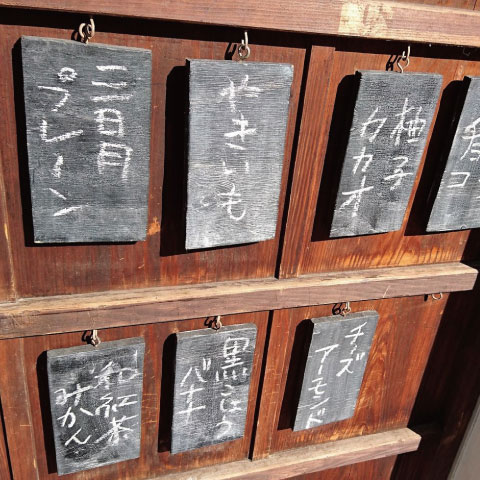 三日月
プレーン
やきいも
柚子
カカオ
和紅茶
みかん
黒こしょう
バナナ
チーズ
アーモンド